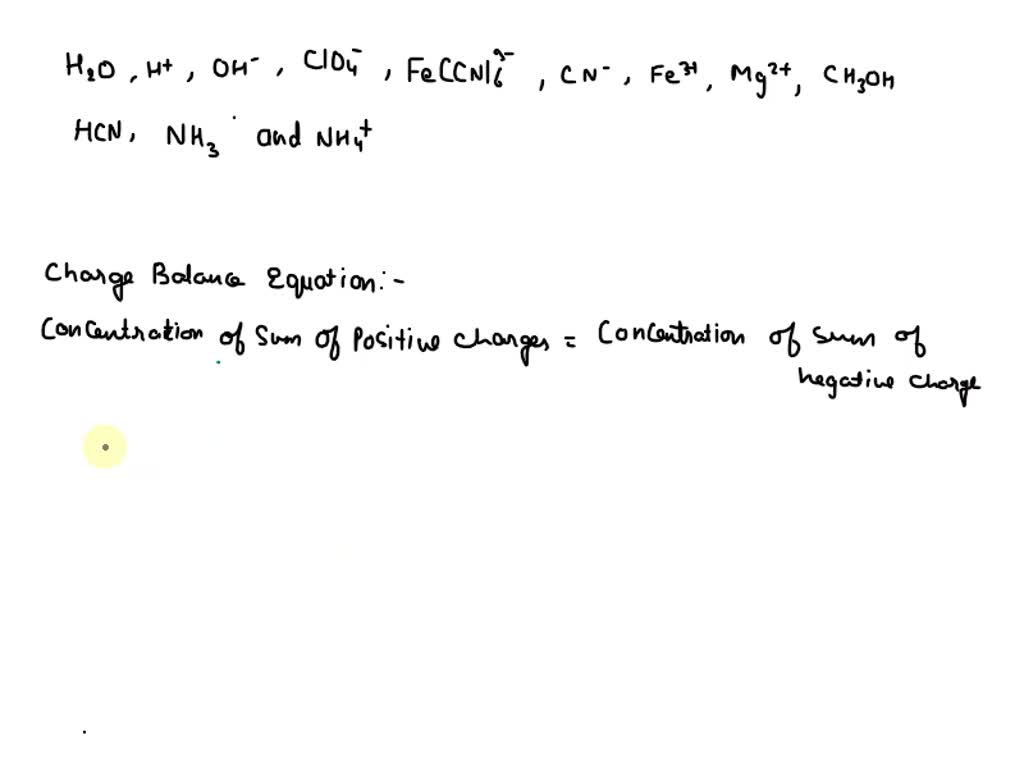 H₂O, H⁺, OH⁻, ClO₄⁻, Fe(CN)₆³⁻, CN⁻, Fe³⁺, Mg²⁺, CH₃OH
HCN, NH₃ and NH₄⁺
Charge Balance Equation:-
Concentration of Sum of Positive charges = Concentration of sum of
negative charge